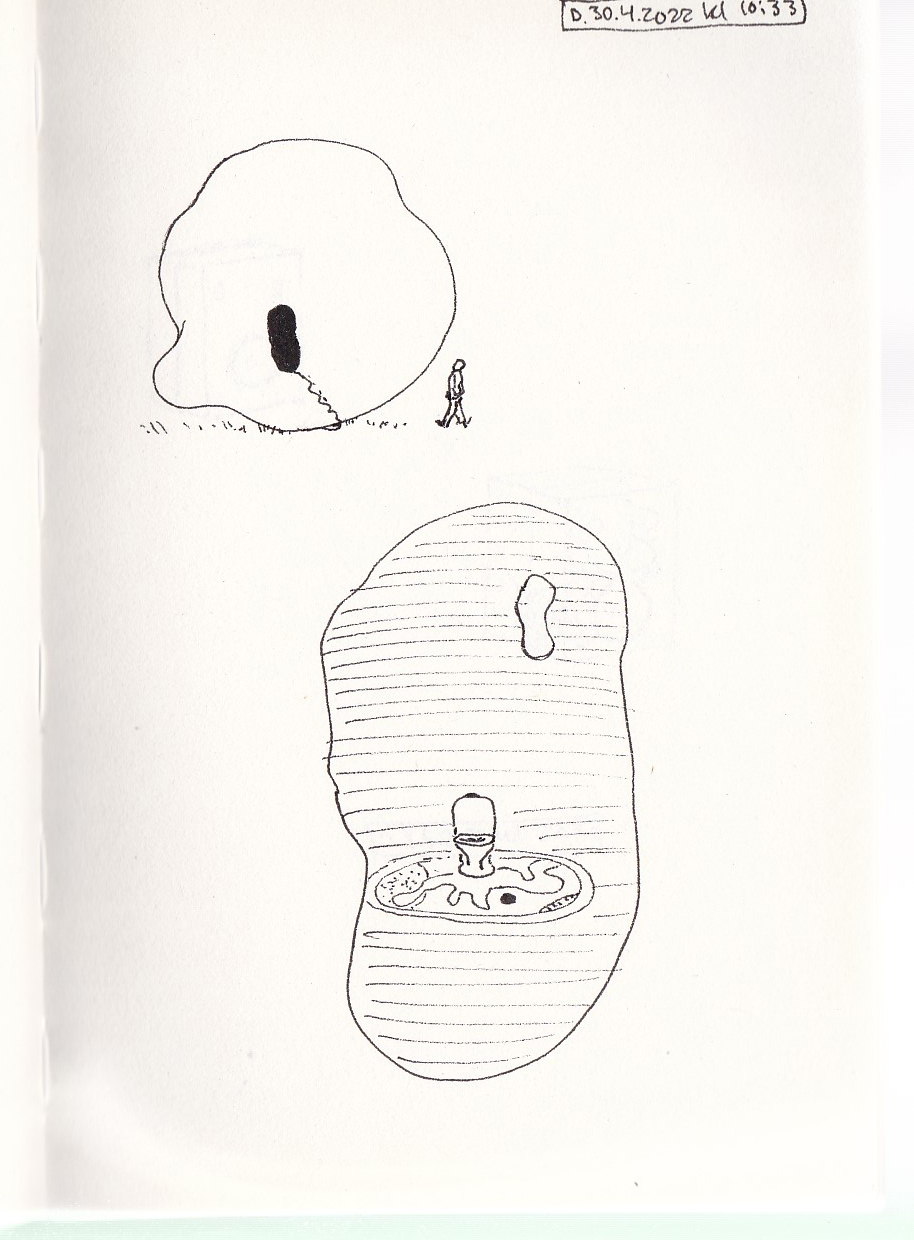 D.30.4.2022 kl 10:33